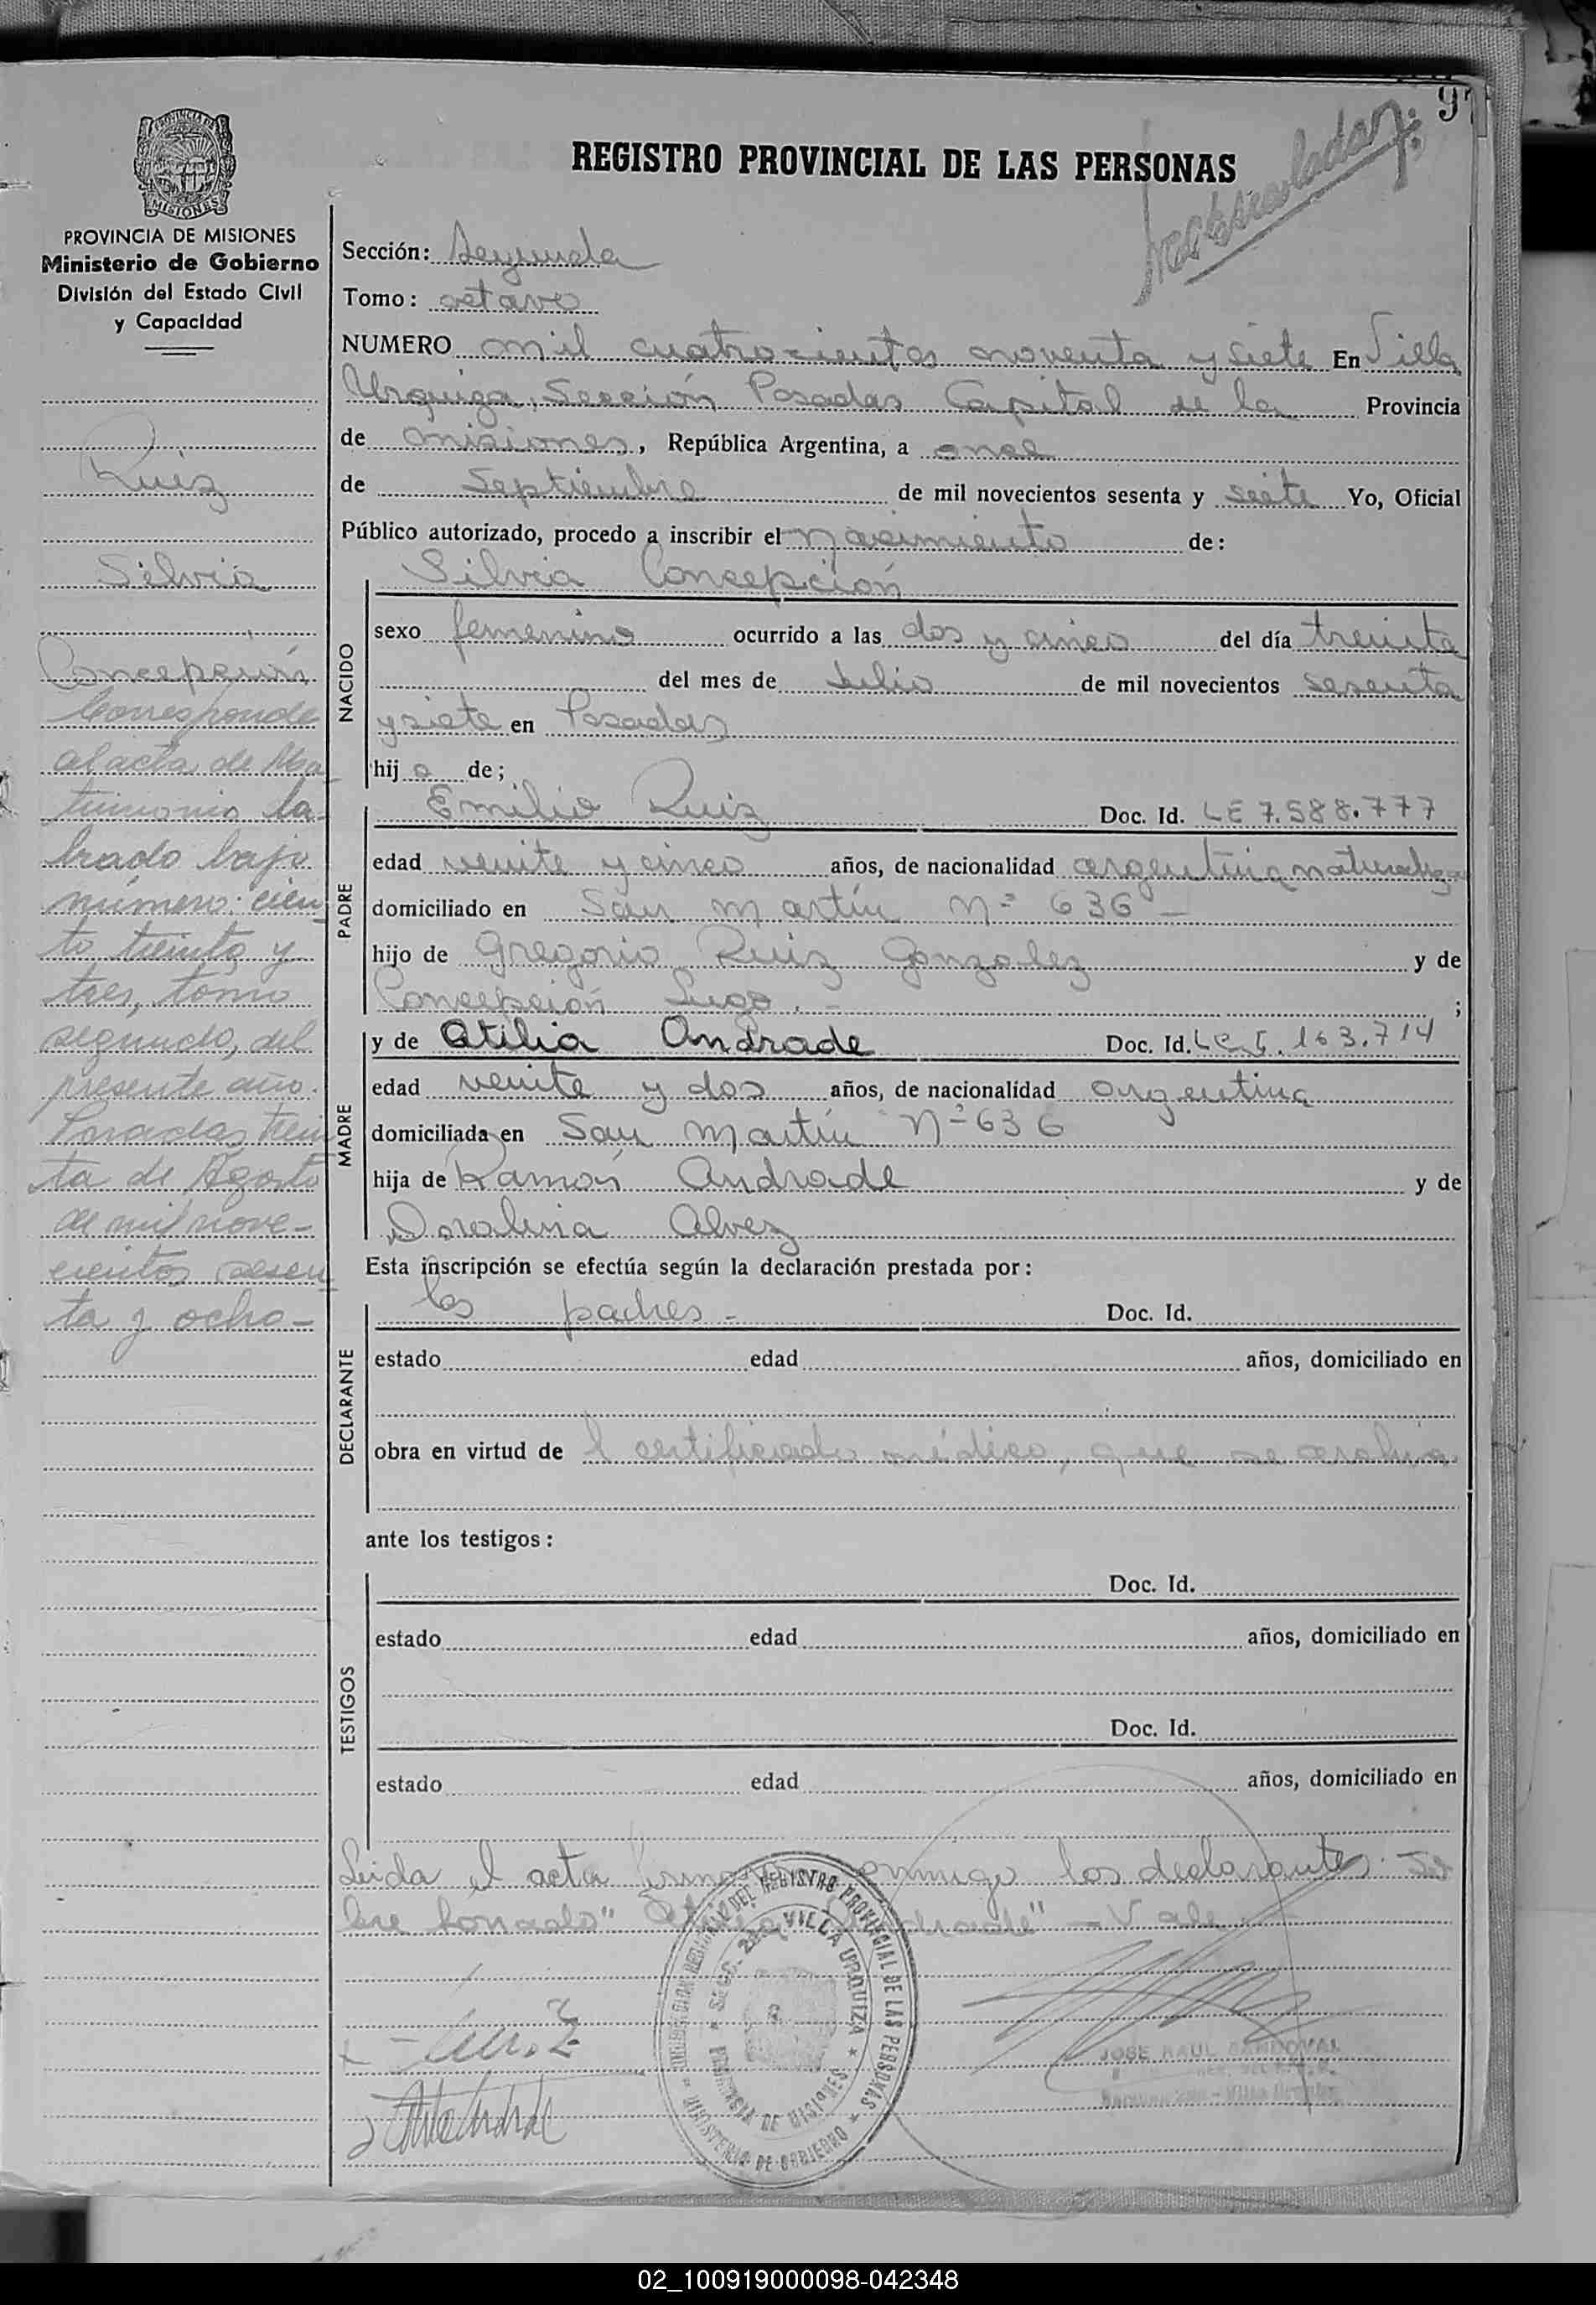 97
REGISTRO PROVINCIAL DE LAS PERSONAS
PROVINCIA DE MISIONES
Ministerio de Gobierno
División del Estado Civil
y Capacidad
Ruiz
Silvia
Concepción
Corresponde
al acta de Ma-
trimonio la-
brado bajo
número: cien-
to treinta y
tres, tomo
segundo, del
presente año.
Posadas, trein
ta de Agosto
de mil nove-
cientos sesen
ta y ocho-
Sección: Segunda
Tomo: octavo
NUMERO mil cuatrocientos noventa y siete En Villa
Urquiza, Sección Posadas Capital de la Provincia
de Misiones, República Argentina, a once
de Septiembre de mil novecientos sesenta y siete Yo, Oficial
Público autorizado, procedo a inscribir el nacimiento de:
Silvia Concepción
NACIDO
sexo femenino ocurrido a las dos y cinco del día treinta
del mes de Julio de mil novecientos sesenta
y siete en Posadas
hij a de;
PADRE
Emilio Ruiz Doc. Id. LE 7.588.777
edad veinte y cinco años, de nacionalidad argentina naturaliza
domiciliado en San Martín Nº 636 -
hijo de Gregorio Ruiz Gonzalez y de
Concepción Lugo. - ;
MADRE
y de Otilia Andrade Doc. Id. LC 5.163.714
edad veinte y dos años, de nacionalidad argentina
domiciliada en San Martín Nº 636
hija de Ramón Andrade y de
Doralina Alvez
Esta inscripción se efectúa según la declaración prestada por:
DECLARANTE
los padres - Doc. Id.
estado edad años, domiciliado en
obra en virtud de l certificado médico, que se archiva
ante los testigos:
TESTIGOS
Doc. Id.
estado edad años, domiciliado en
Doc. Id.
estado edad años, domiciliado en
Leida el acta conmigo los declarantes. So
bre borrado" Otilia Andrade" - Vale
DEL REGISTRO PROVINCIAL DE LAS PERSONAS
MINISTERIO DE GOBIERNO
SECC. 2da. VILLA URQUIZA
PROVINCIA DE MISIONES
JOSE RAUL SANDOVAL
02_100919000098-042348